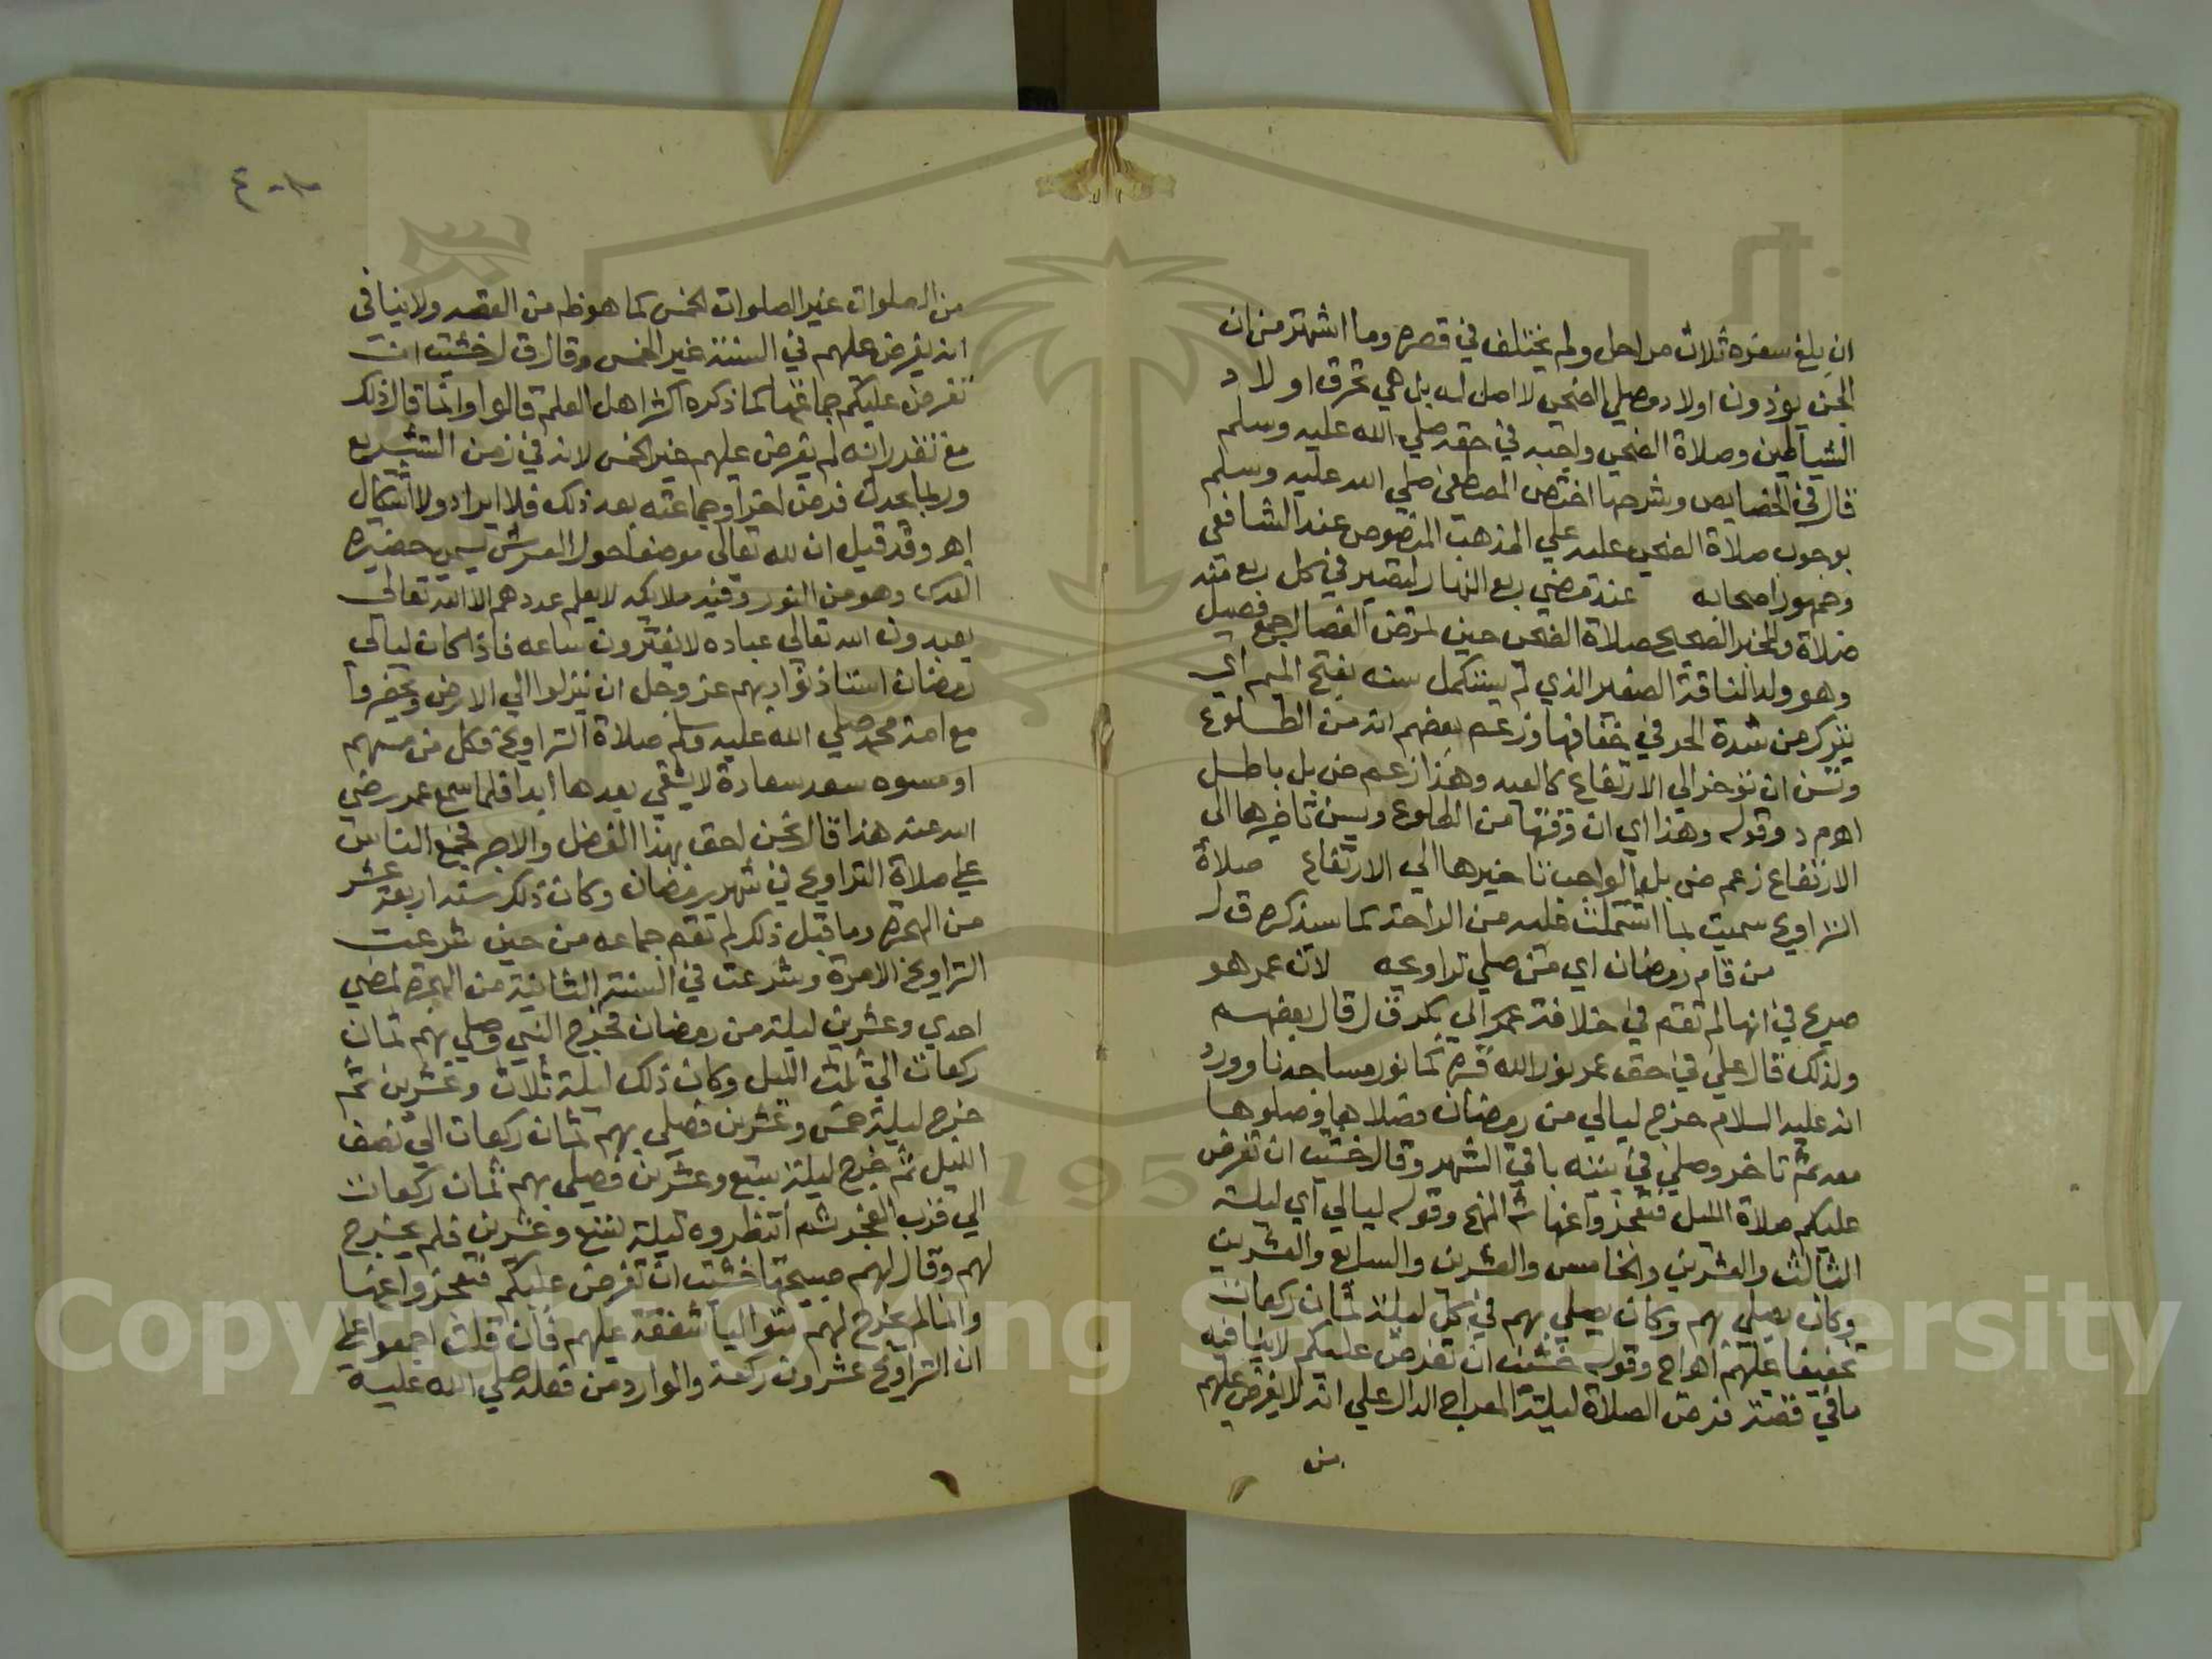 ان بلغ سفره ثلاث مراحل ولم يختلف في قصره وما اشتهر من ان
الجن يؤذون اولاد مصلي الضحى لا اصل له بل هي تحرق اولاد
الشياطين وصلاة الضحى واجبه في حقه صلي الله عليه وسلم
قال في الخصايص وشرحها اختص المصطفى صلي الله عليه وسلم
بوجوب صلاة الضحى عليه علي المذهب المنصوص عند الشافعى
وجمهور اصحابه عند مضي ربع النهار ليصير في كل ربع منه
صلاة والخبر الصحيح صلاة الضحى حين ترمض الفصال جمع فصيل
وهو ولد الناقة الصغير الذي لم يستكمل سنه بفتح الميم اي
يبرك من شدة الحر في خفافها وزعم بعضهم انه من الطلوع
وتسن ان تؤخر الي الارتفاع كالعيد وهذا زعم ض بل باطل
اهـ م د وقوله وهذا اي ان وقتها من الطلوع ويسن تاخيرها الى
الارتفاع زعم ض بل الواجب تاخيرها الي الارتفاع صلاة
التراويح سميت بما اشتملت عليه من الراحة كما سيذكره ق ل
من قام رمضان اي من صلي تراويحه لان عمر هو
صريح في انها لم تقم في خلافة ابي بكر ق ل قال بعضهم
ولذلك قال علي في حق عمر نور الله قبره كما نور مساجدنا وورد
انه عليه السلام خرج ليالي من رمضان فصلاها وصلوها
معه ثم تاخر وصلي في بيته باقي الشهر وقال خشيت ان تفرض
عليكم صلاة الليل فتعجزوا عنها شرح المنهج وقوله ليالي اي ليلة
الثالث والعشرين والخامس والعشرين والسابع والعشرين
وكان يصلي بهم وكان يصلي بهم في كل ليلة ثمان ركعات
تخفيفا عليهم اهـ اج وقوله خشيت ان تفرض عليكم لا ينافيه
ما في قصة فرض الصلاة ليلة المعراج الدال علي انه لا يفرض عليهم
من
من الصلوات غير الصلوات الخمس كما هو ظ من القصه ولا ينافى
انه يفرض عليهم في السنة غير الخمس وقال ق ل خشيت ان
تفرض عليكم جماعتها كما ذكره اكثر اهل العلم قالوا وانما قال ذلك
مع تقدر انه لم يفرض عليهم غير الخمس لانه في زمن التشريع
وربما يحدث فرض اخر او جماعته بعد ذلك فلا ايراد ولا اشكال
اهـ وقد قيل ان لله تعالى موضعا حول العرش يسمى حضيرة
القدس وهو من النور وفيه ملايكه لا يعلم عددهم الا الله تعالى
يعبدون الله تعالى عباده لا يفترون ساعه فاذا كان ليالي
رمضان استاذنوا ربهم عز وجل ان ينزلوا الي الارض ويحضروا
مع امة محمد صلي الله عليه وسلم صلاة التراويح فكل من مسهم
او مسوه سعد سعادة لا يشقى بعدها ابدا فلما سمع عمر رضي
الله عنه هذا قال نحن احق بهذا الفضل والاجر فجمع الناس
علي صلاة التراويح في شهر رمضان وكان ذلك سنه اربعة عشر
من الهجرة وما قبل ذلك لم تقم جماعه من حين شرعت
التراويح الا مرة وشرعت في السنة الثانية من الهجرة لمضي
احدي وعشرين ليلة من رمضان فخرج النبي وصلي بهم ثمان
ركعات الي ثلث الليل وكان ذلك ليلة ثلاث وعشرين ثم
خرج ليلة خمس وعشرين فصلي بهم ثمان ركعات الي نصف
الليل ثم خرج ليلة سبع وعشرين فصلى بهم ثمان ركعات
الي قرب الفجر ثم انتظروه ليلة تسع وعشرين فلم يخرج
لهم وقال لهم صبيحتها خشيت ان تفرض عليكم فتعجزوا عنها
وانما لم يخرج لهم متواليا شفقة عليهم فان قلت اجمعوا علي
ان التراويح عشرون ركعة والوارد من فعله صلي الله عليه
Copyright © King Saud University
195